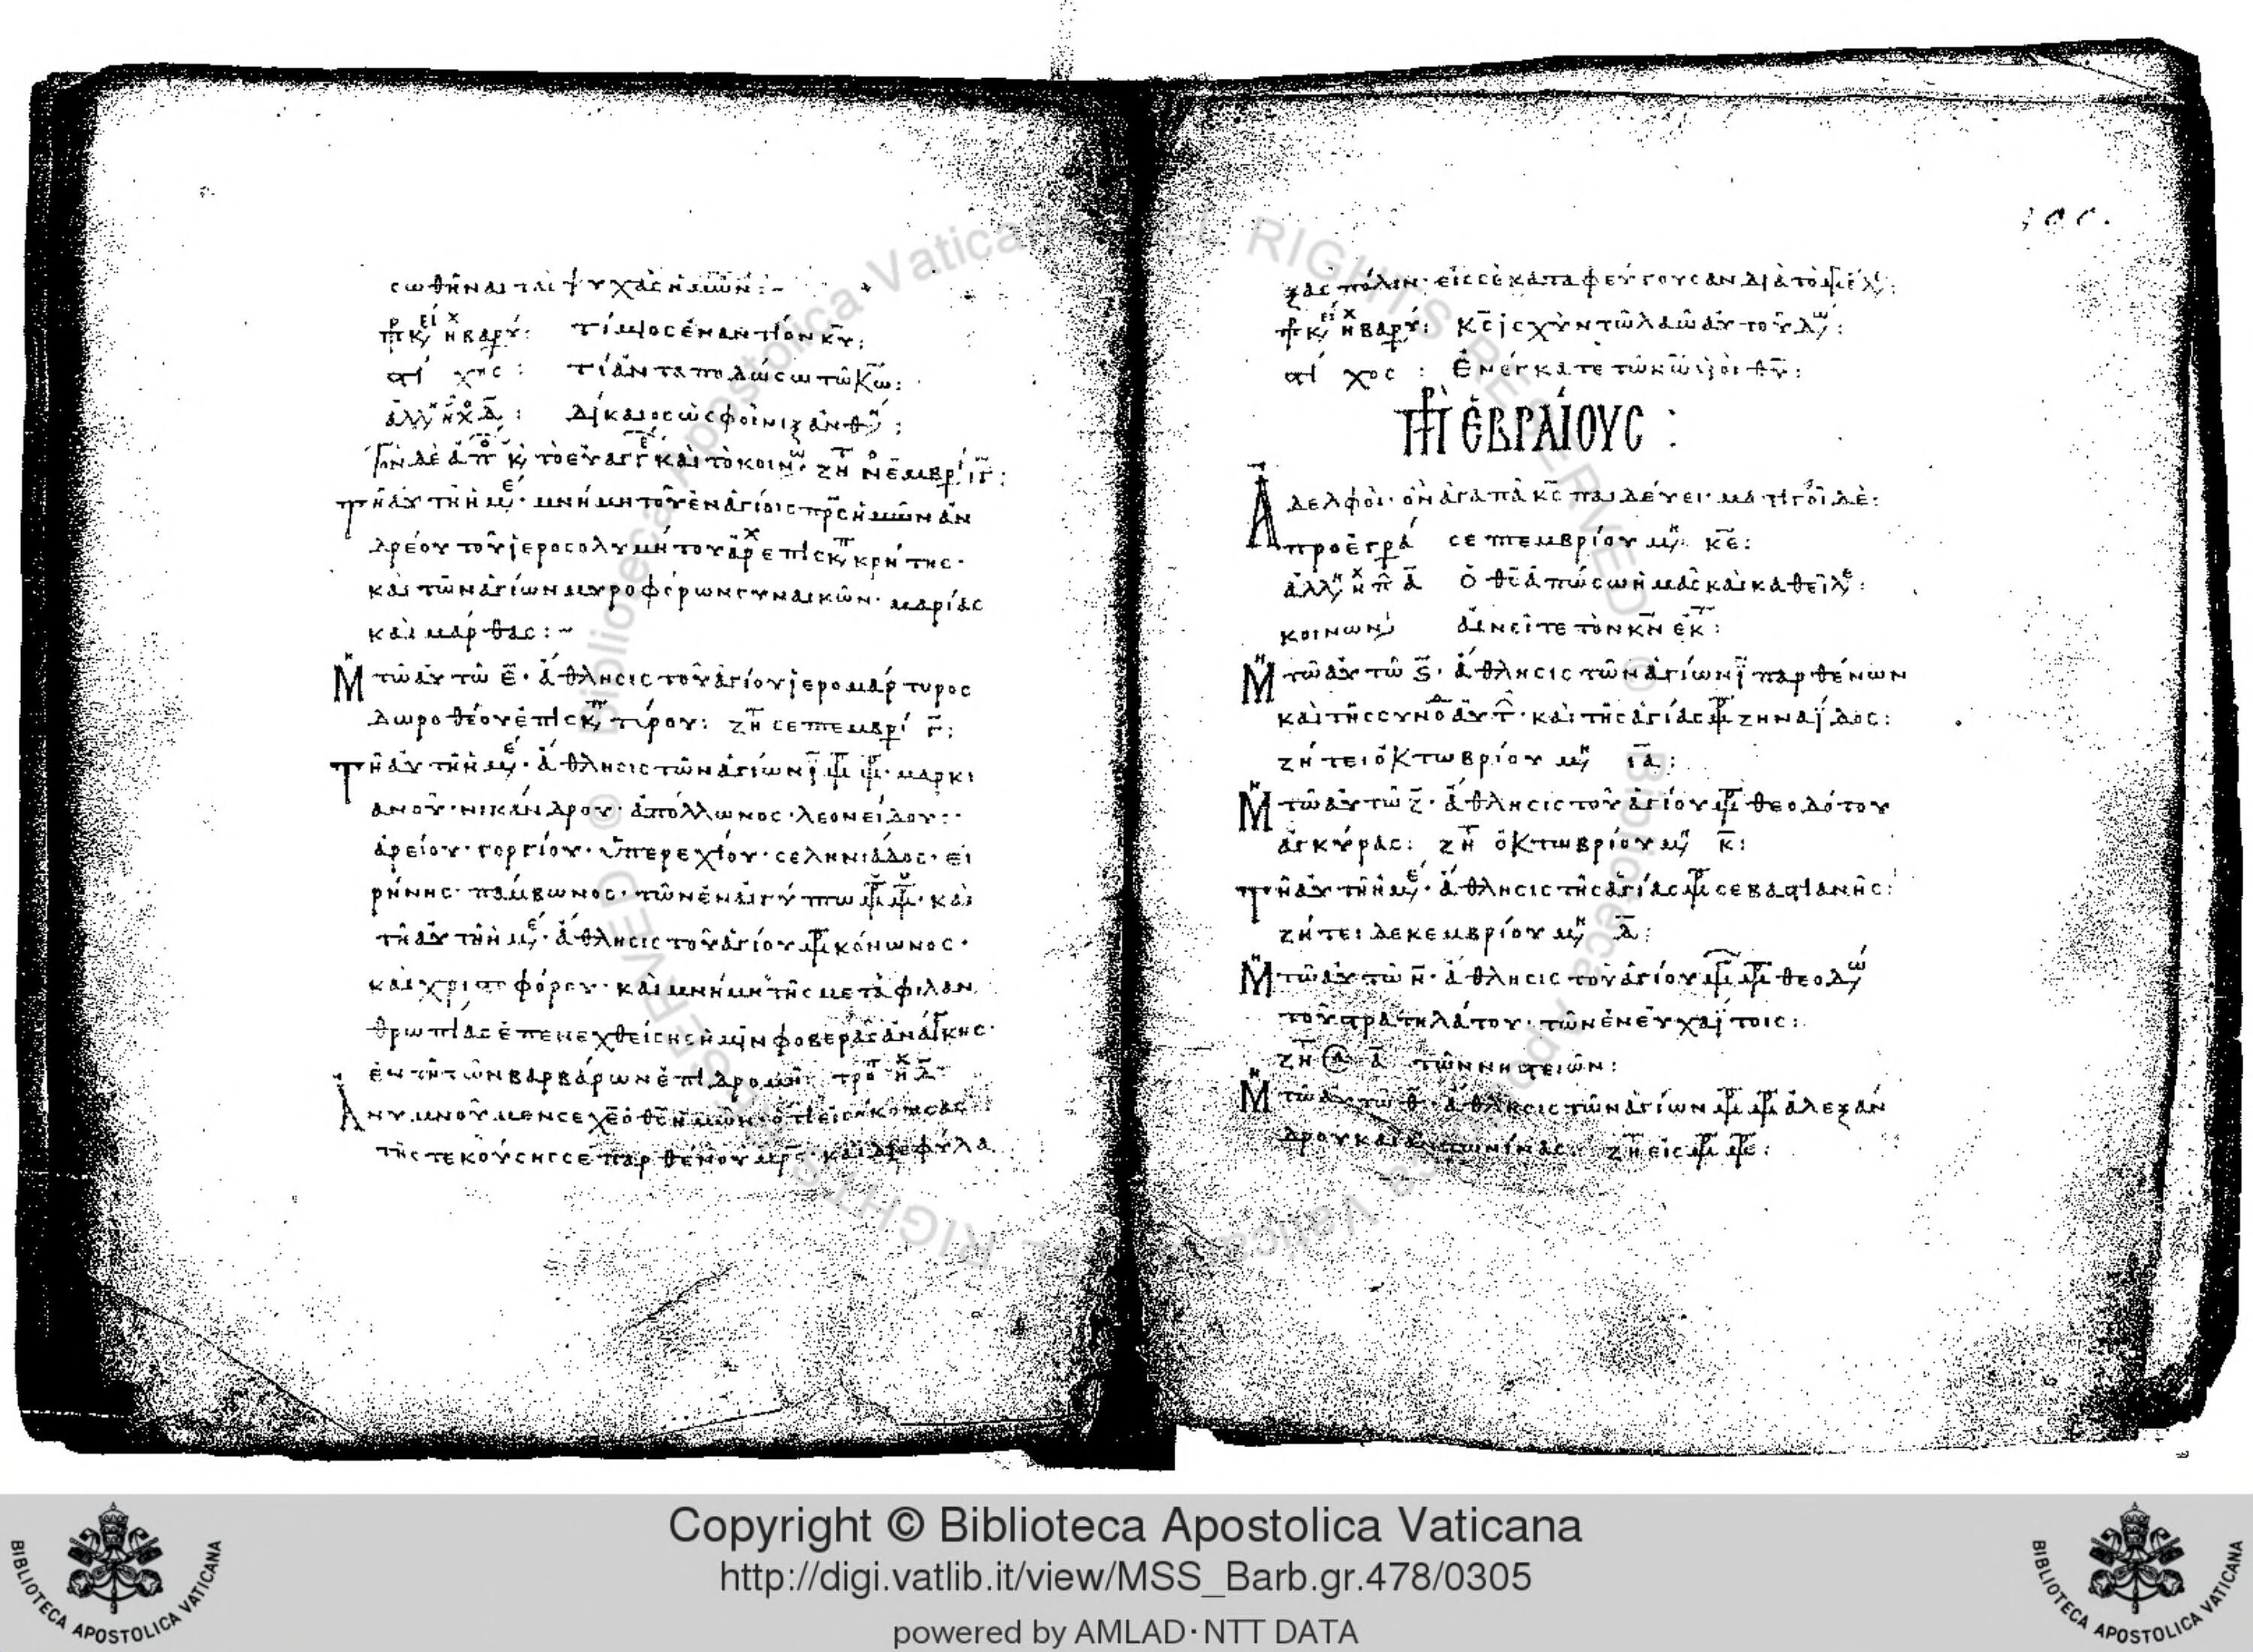 σωθῆναι τὰς ψυχὰς ἡμῶν :~
τίμιος ἐναντίον κυ :
στί χος : τί ἀνταποδώσω τῶ κω :
ἀλλη ηχ δ : δίκαιος ὡς φοῖνιξ ἀνθ :
καὶ τὸ κοιν ζητ νοεμβρί ιγ :
τῆ αὐτῆ ἡμε · μνήμη τοῦ ἐν ἁγίοις πρς ἡμῶν ἀν
δρέου τοῦ ἱεροσολυμήτου ἀρχεπισκπ κρήτης ·
καὶ τῶν ἁγίων μυροφόρων γυναικῶν · μαρίας
καὶ μάρθας :~
Μη τῶ αὐτῶ ε · ἄθλησις τοῦ ἁγίου ἱερομάρτυρος
δωροθέου ἐπισκπ τύρου : ζητ σεπτεμβρί γ :
τῆ αὐτῆ ἡμε · ἄθλησις τῶν ἁγίων ι μρ μρ · μαρκι
ανοῦ · νικάνδρου · ἀπόλλωνος · λεονείδου :·
ἀρείου · γοργίου · ὑπερεχίου · σεληνιάδος · εἰ
ρήνης · πάμβωνος · τῶν ἐν αἰγύπτω μρ μρ · καὶ
τῆ αὐτῆ ἡμε · ἄθλησις τοῦ ἁγίου μρ κόνωνος ·
καὶ χριστοφόρου · καὶ μνήμη τῆς μετὰ φιλαν
θρωπίας ἐπενεχθείσης ἡμῖν φοβερᾶς ἀνάγκης ·
ἐν τῆ τῶν βαρβάρων ἐπιδρομῆ : τροπ ηχ δ
Ἀνυμνοῦμέν σε χε ὁ θς ἡμῶν
τῆς τεκούσης σε παρθένου μρς · καὶ διεφύλα
ξας πόλιν · εἰς σὲ καταφεύγουσαν διὰ τὸ μέγ ἔλ :
κς ἰσχὺν τῶ λαῶ αὐτοῦ δω :
στί χος : Ἐνέγκατε τῶ κω υἱοὶ θυ :
πρ ἑβραίους :
Ἀδελφοὶ · ὃν ἀγαπᾶ κς παιδεύει · μαστιγοῖ δὲ :
προεγρά σεπτεμβρίου μη κε :
ἀλλη ηχ π α ὁ θς ἀπώσω ἡμᾶς καὶ καθεῖλε :
κοινων αἰνεῖτε τὸν κν ἐκ τ :
Μη τῶ αὐτῶ ς · ἄθλησις τῶν ἁγίων ι παρθένων
καὶ τῆς συνοδ αὐτ · καὶ τῆς ἁγίας μρ ζηναΐδος :
ζήτει ὀκτωβρίου μη ια :
Μη τῶ αὐτῶ ζ · ἄθλησις τοῦ ἁγίου μρ θεοδότου
ἀγκύρας : ζητ ὀκτωβρίου μη κ :
τῆ αὐτῆ ἡμε · ἄθλησις τῆς ἁγίας μρ σεβαστιανῆς :
ζήτει δεκεμβρίου μη δ :
Μη τῶ αὐτῶ η · ἄθλησις τοῦ ἁγίου μεγ μρ θεοδώ
τοῦ στρατηλάτου · τῶν ἐν εὐχαΐτοις :
ζη α τῶν νηστειῶν :
Μη τῶ αὐτῶ θ · ἄθλησις τῶν ἁγίων μρ μρ ἀλεξάν
δρου καὶ ἀντωνίνας : ζητ εἰς μρ μρ :
Copyright © Biblioteca Apostolica Vaticana
http://digi.vatlib.it/view/MSS_Barb.gr.478/0305
powered by AMLAD·NTT DATA
BIBLIOTECA APOSTOLICA VATICANA
BIBLIOTECA APOSTOLICA VATICANA